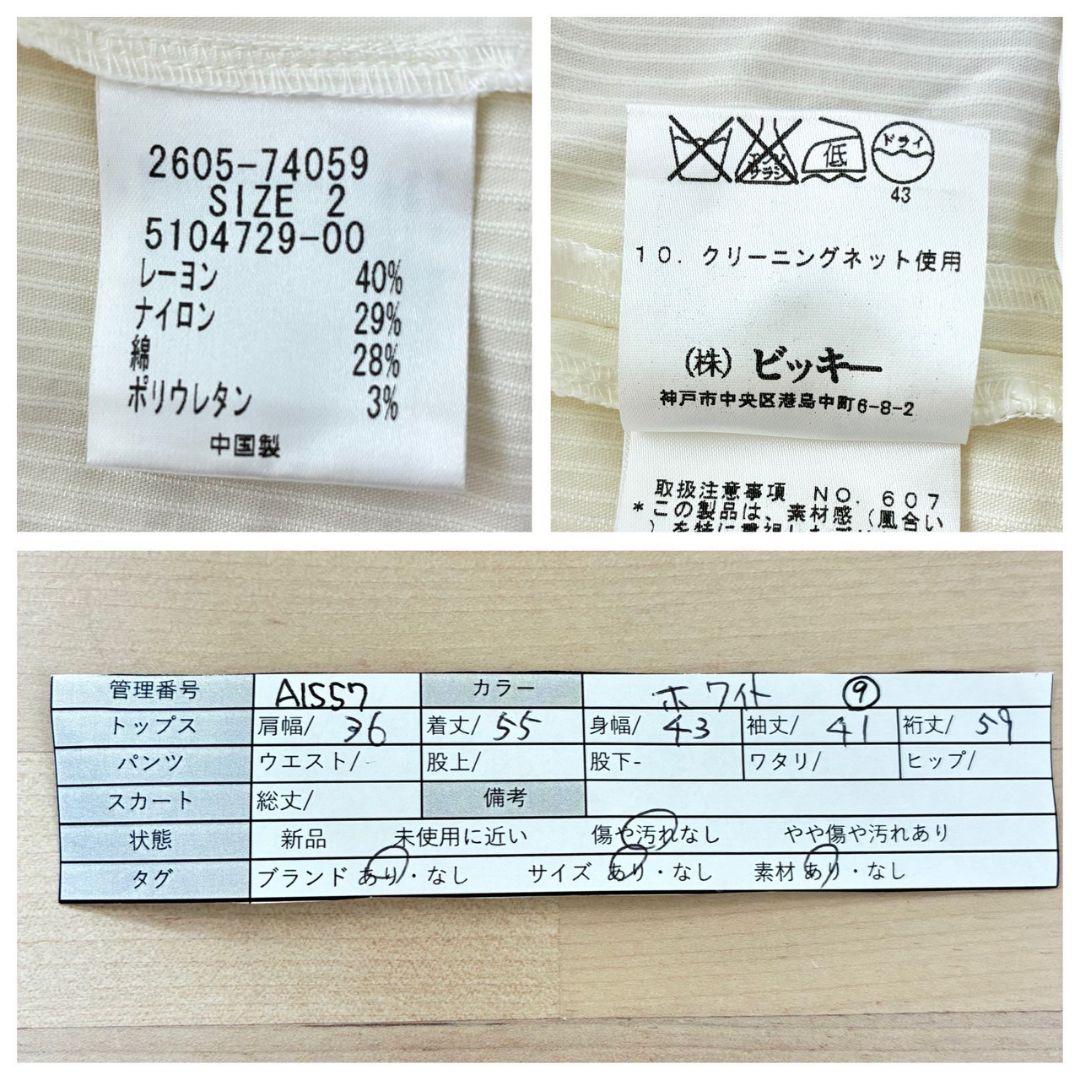 2605-74059
SIZE 2
5104729-00
レーヨン 40%
ナイロン 29%
綿 28%
ポリウレタン 3%
中国製
エンソサラシ 低 ドライ
43
10. クリーニングネット使用
(株) ビッキー
神戸市中央区港島中町6-8-2
取扱注意事項 NO. 607
*この製品は、素材感(風合い
管理番号 A1557 カラー ホワイト ⑨
トップス 肩幅/ 36 着丈/ 55 身幅/ 43 袖丈/ 41 裄丈/ 59
パンツ ウエスト/ 股上/ 股下- ワタリ/ ヒップ/
スカート 総丈/ 備考
状態 新品 未使用に近い 傷や汚れなし やや傷や汚れあり
タグ ブランド あり・なし サイズ あり・なし 素材 あり・なし